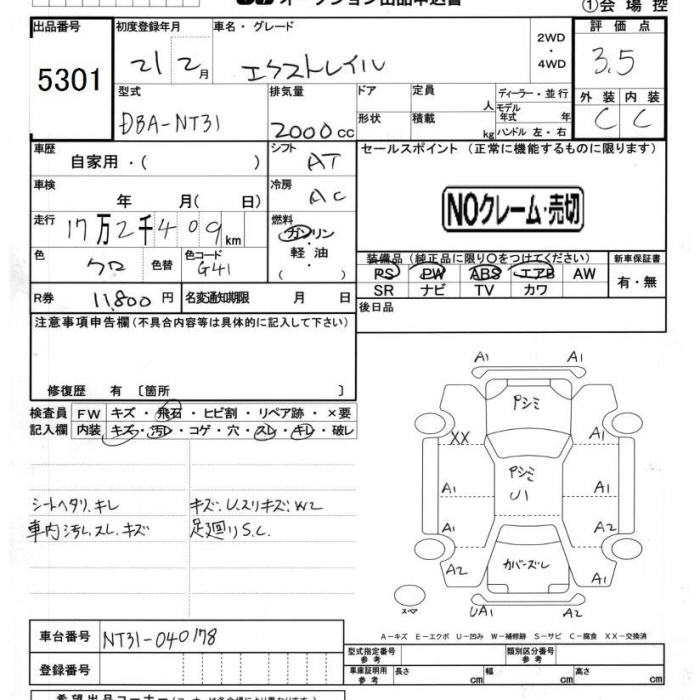 オークション出品申込書
①会場控
出品番号 初度登録年月 車名・グレード 評価点
5301 21 2月 エクストレイル 2WD・4WD 3.5
型式 排気量 ドア 定員 ディーラー・並行 外装 内装
DBA-NT31 2000cc 形状 積載 人 kg モデル年式 年 ハンドル 左・右 C C
車歴 シフト セールスポイント(正常に機能するものに限ります)
自家用・( ) AT
車検 冷房
年 月( 日) AC NOクレーム・売切
走行 燃料
17万2千409km ガソリン・軽油・
色 色替 色コード 装備品(純正品に限り○をつけてください) 新車保証書
クロ G41 PS PW ABS エアB AW 有・無
SR ナビ TV カワ
R券 11,800円 名変通知期限 月 日 後日品
注意事項申告欄(不具合内容等は具体的に記入して下さい)
修復歴 有 〔箇所 〕
検査員 FW キズ・飛石・ヒビ割・リペア跡・×要
記入欄 内装 キズ・汚レ・コゲ・穴・スレ・キレ・破レ
シートヘタリ、キレ キズ、U、スリキズ、W2
車内汚レ、スレ、キズ 足廻りS、C、
A1 A1
Pシミ
XX A1
Pシミ
A1 U1 A1
A1 A2
A2 カバーズレ A1
スペア UA1 A2
A-キズ E-エクボ U-凹み W-補修跡 S-サビ C-腐食 XX-交換済
車台番号 NT31-040178
型式指定番号 参考 類別区分番号 参考
登録番号 車庫証明用 参考 長さ cm 幅 cm 高さ cm
希望出品コーナー